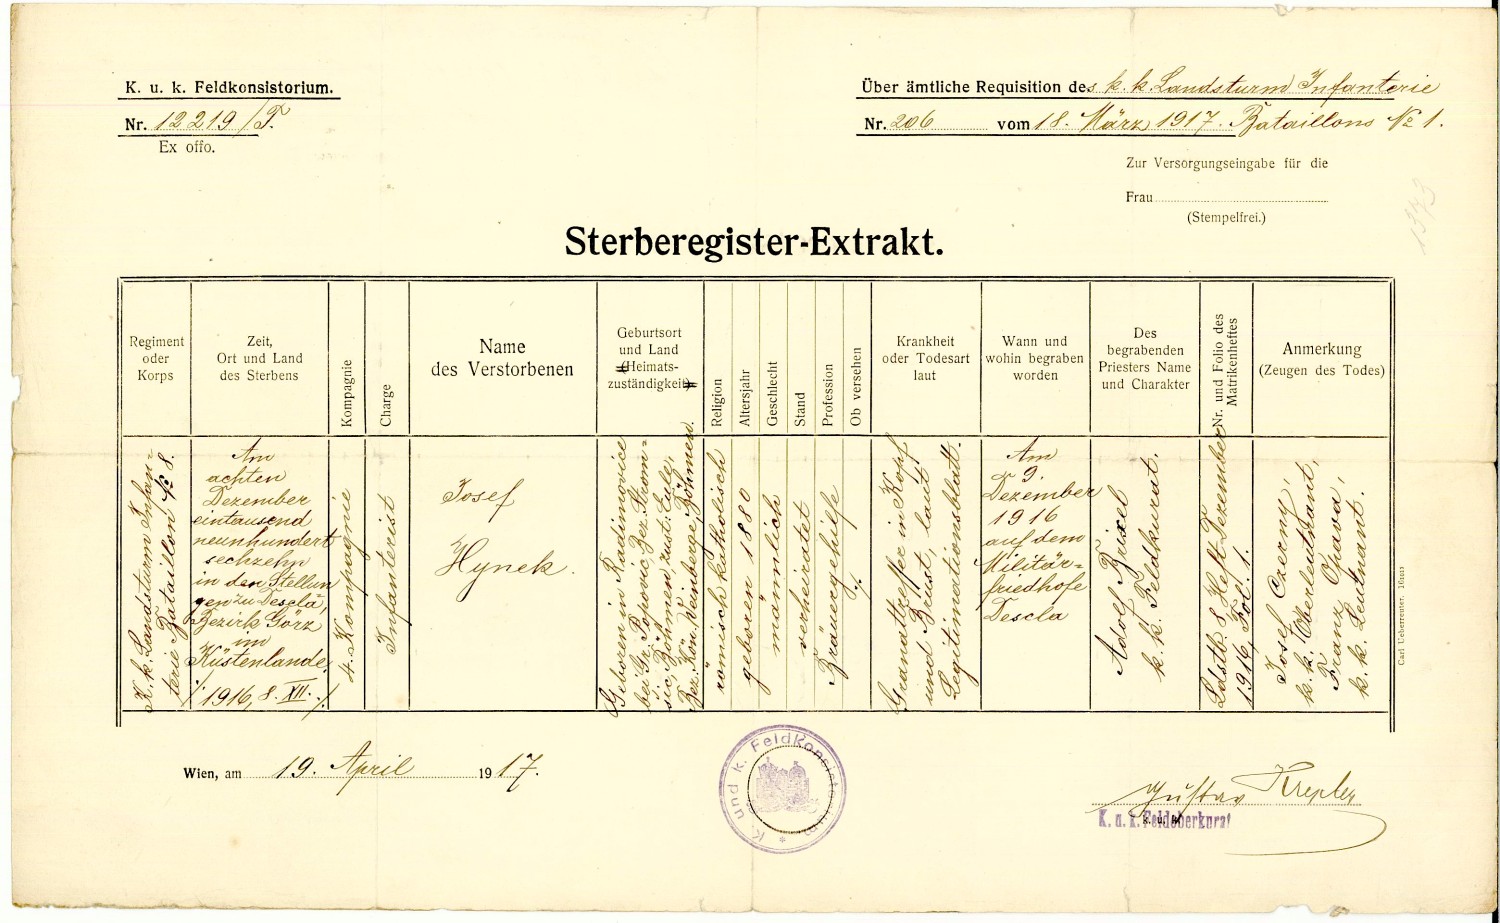 K. u. k. Feldkonsistorium.
Nr. 12219/T.
Ex offo.
Über ämtliche Requisition des k. k. Landsturm Infanterie
Nr. 206 vom 18. März 1917. Bataillons № 1.
Zur Versorgungseingabe für die
Frau
(Stempelfrei.)
1373
Sterberegister-Extrakt.
Regiment
oder
Korps
Zeit,
Ort und Land
des Sterbens
Kompagnie
Charge
Name
des Verstorbenen
Geburtsort
und Land
(Heimats-
zuständigkeit)
Religion
Altersjahr
Geschlecht
Stand
Profession
Ob versehen
Krankheit
oder Todesart
laut
Wann und
wohin begraben
worden
Des
begrabenden
Priesters Name
und Charakter
Nr. und Folio des
Matrikenheftes
Anmerkung
(Zeugen des Todes)
K. k. Landsturm Infan-
terie Bataillon № 8.
Am
achten
Dezember
eintausend
neunhundert
sechzehn
in den Stellun
gen zu Descla,
Bezirk Görz
im
Küstenlande.
/1916, 8. XII./
4. Kompagnie
Infanterist
Josef
Hynek.
Geboren in Radimovice
bei Gr. Popovic Bez. Zizkom-
sic, Böhmen, zust: Eule,
Bez. Kön. Weinberge, Böhmen.
römisch katholisch
geboren 1880
männlich
verheiratet
Bräuergehilfe
/.
Granattreffer in Kopf
und Brust, laut
Legitimationsblatt.
Am
9.
Dezember
1916
auf dem
Militär-
friedhofe
Descla
Adolf Brixel
k. k. Feldkurat.
Ldstb. 8 Heft Dezember
1916, Fol. 1.
Josef Czerny,
k. k. Oberleutnant,
Franz Opava,
k. k. Leutnant.
Carl Ueberreuter.
Wien, am 19. April 1917.
K. und k. Feldkonsistorium *
Gustav Krepler
K. u. k. Feldoberkurat